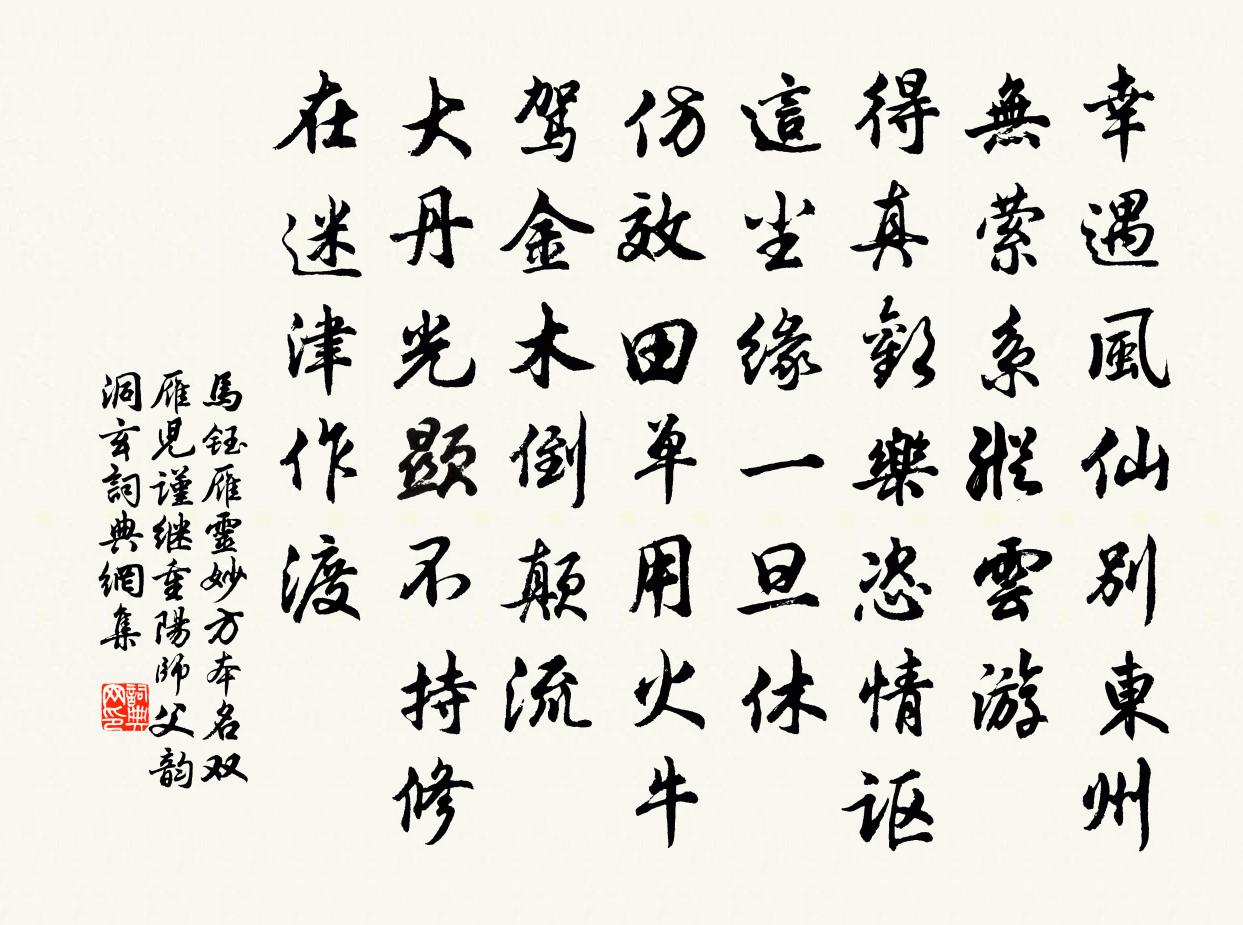 幸遇風仙別東州
無萦系縱雲游
得真歡樂恣情讴
這坐缘一旦休
仿效田单用火牛
驾金木倒颠流
大丹光顯不持修
在迷津作渡
馬鈺雁靈妙方本名双
雁児谨继重陽師父韵
洞玄詞典網集
詞典网印